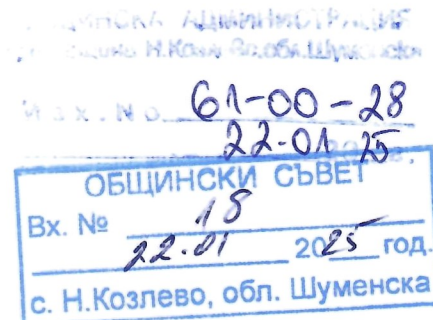 ОБЩИНСКА АДМИНИСТРАЦИЯ
Н.Козлево, обл.Шуменска
Изх. № 61-00-28
22.01 25
ОБЩИНСКИ СЪВЕТ
Вх. № 18
22.01 2025 год.
с. Н.Козлево, обл. Шуменска